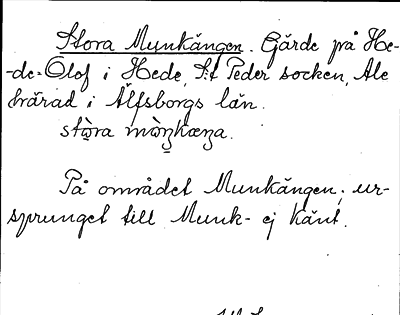 Stora Munkängen. Gärde på He-
-de-Olof i Hede, S:t Peder socken, Ale
härad i Älfsborgs län.
stɷ̀ra mɷ̀ŋkæŋa.
På området Munkängen; ur-
sprunget till Munk- ej känt.